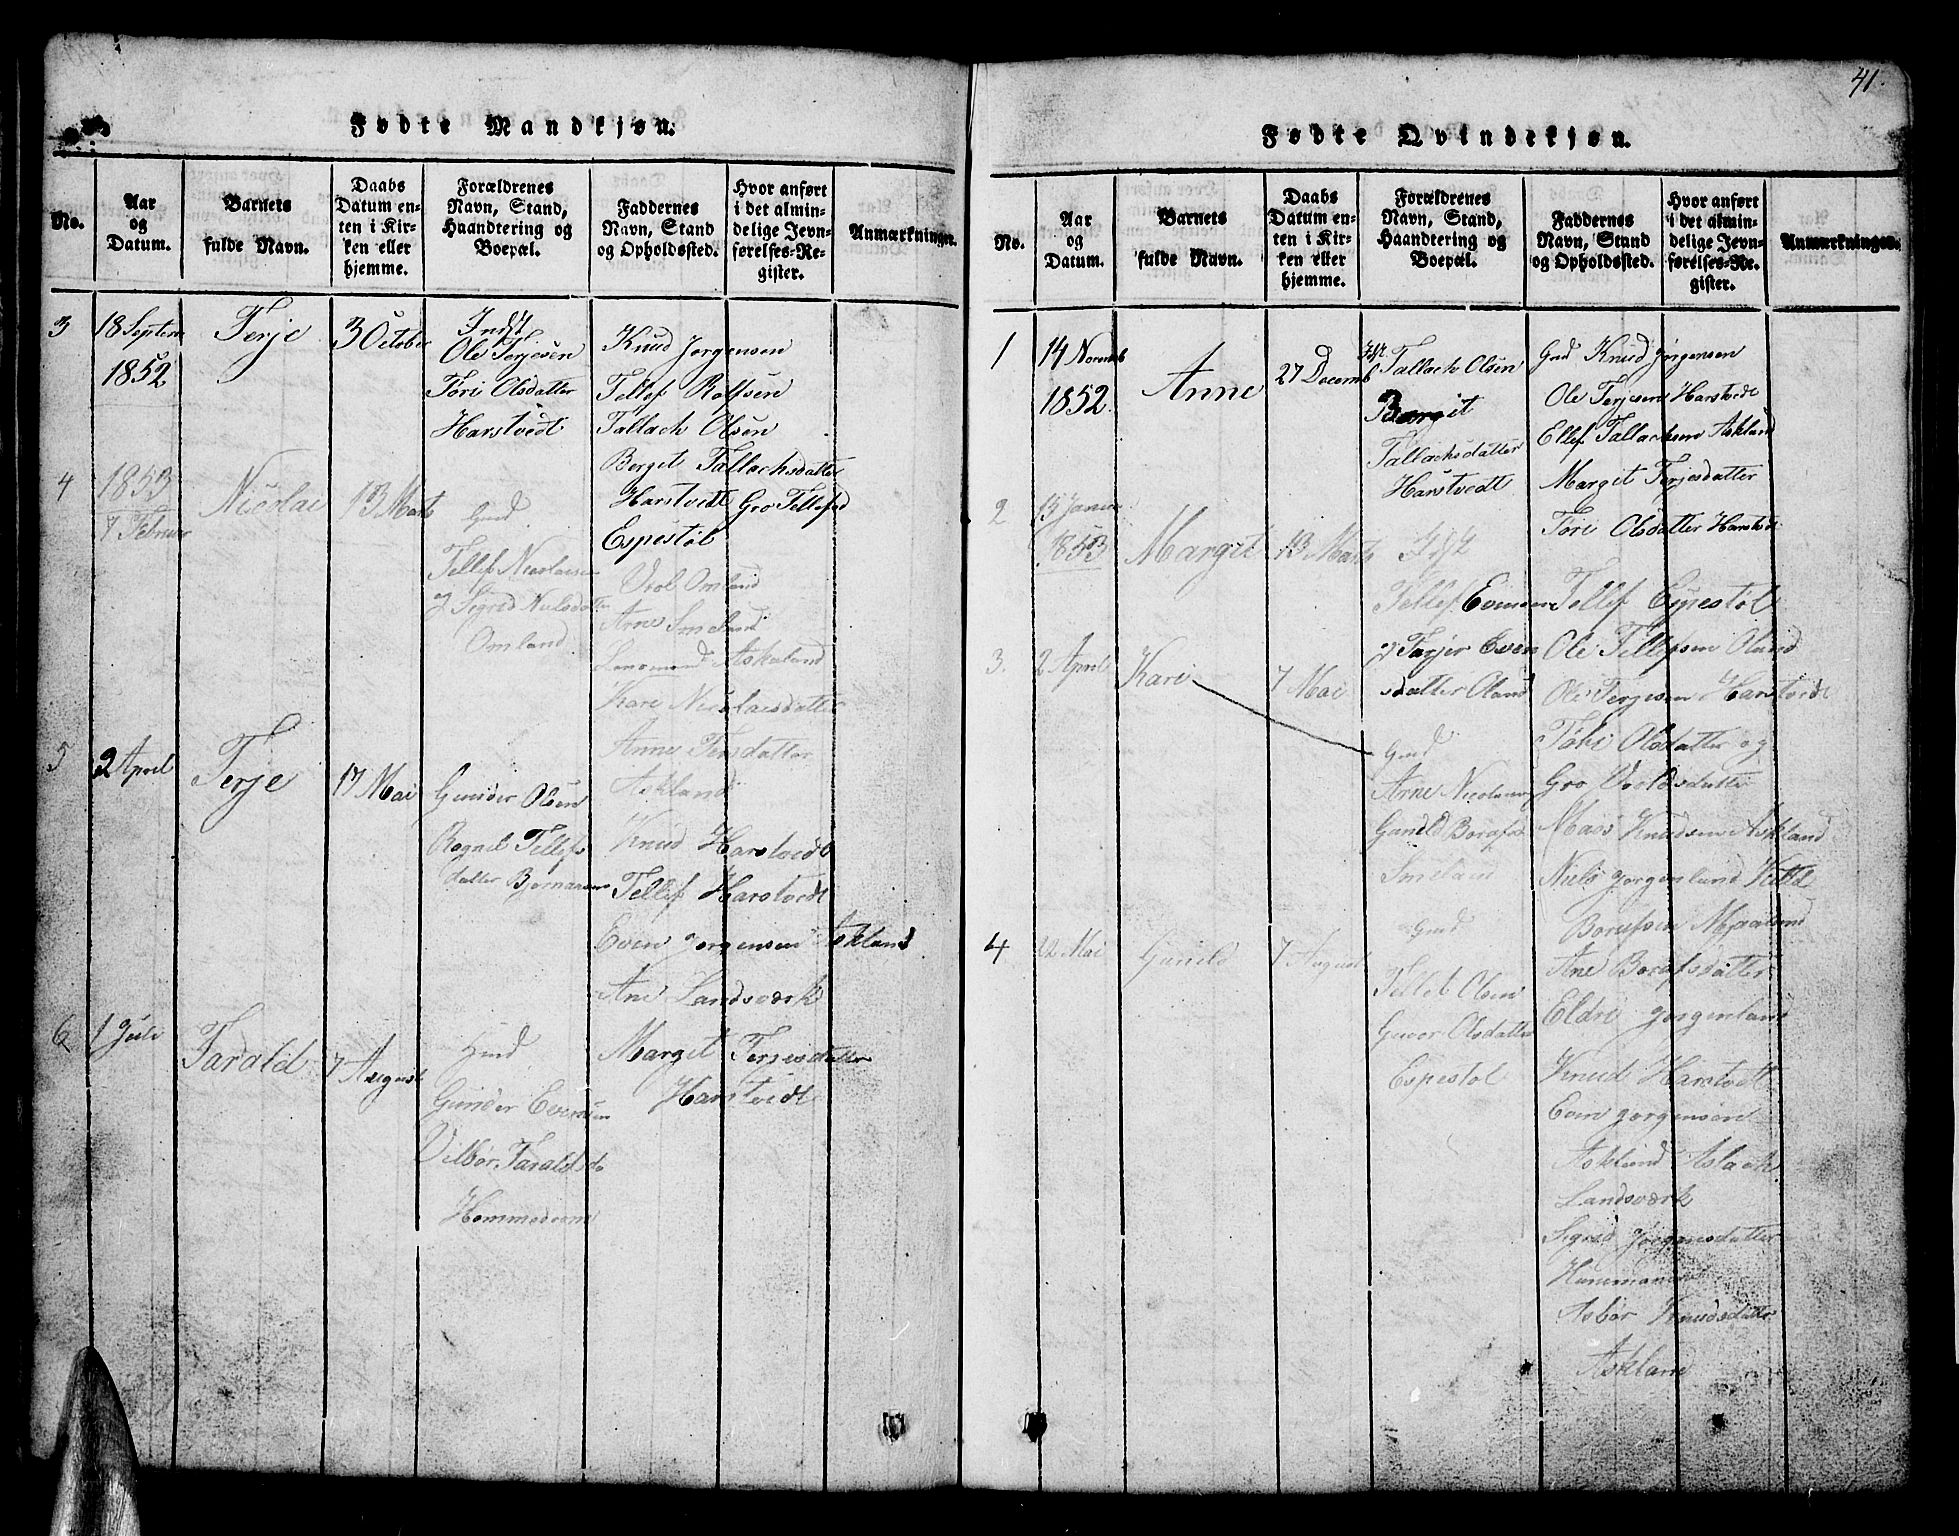 Fødte Mandkjøn.
No.
Aar
og
Datum.
Barnets
fulde Navn.
Daabs
Datum en-
ten i Kir-
ken eller
hjemme.
Forældrenes
Navn, Stand,
Haandtering og
Boepæl.
Faddernes
Navn, Stand
og Opholdssted.
Hvor anført
i det almin-
delige Jevn-
førelses-Re-
gister.
Anmærkninger.
3
18 Septem
1852
Terje
3 October
Indst
Ole Terjesen
Tori Olsdatter
Harstvedt
Knud Jorgensen
Tellef Rolfsen
Tallach Olsen
Berget Tallachsdatter
Harstvedt Gro Tellefsd
Espestøl
4
1853
7 Februar
Nicolai
13 Marts
Gmd
Tellef Nicolaisen
Sigrid Nilsdatter
Omland
Omland
Arne Smeland
Askeland
Kare Nicolaisdatter
Anne
Askland
5
2 April
Terje
17 Mai
Gunder Olsen
Rognil Tellefs
datter
Knud Harstvedt
Tellef Harstvedt
Even Jorgensen Askland
Ane Landsværk
Margit Terjesdatter
Harstvedt
6
1 Juli
Tarald
7 August
Gunder Evensen
Vilbor Taralds
41.
Fødte Qvindekjøn.
No.
Aar
og
Datum.
Barnets
fulde Navn.
Daabs
Datum en-
ten i Kir-
ken eller
hjemme.
Forældrenes
Navn, Stand,
Haandtering og
Boepæl.
Faddernes
Navn, Stand
og Opholdssted.
Hvor anført
i det almin-
delige Jevn-
førelses-Re-
gister.
Anmærkninger.
1
14 Novemb
1852.
Anne
27 Decemb
Tallach Olsen
Bergit
Tallachsdatter
Harstvedt
Gmd Knud Jørgensen
Ole Terjesen Harstvedt
Ellef Tallachsen Askland
Margit Terjesdatter
Tori Olsdatter Harstvedt
2
13 Januar
1853
Margit
13 Marts
Tellef Evensen
Tarjer Even
sdatter Oland
Tellef Espestøl
Ole Tellefsen Oland
Ole Terjesen Harstvedt
Olsdatter og
Gro
3.
2 April
Kari
7 Mai
Gmd
Arne Nicolaisen
Gunild Borufsd
Smeland
Mass Knudsen Askland
Niels Jorgenlund
Borufsen
Ane Borufsdatter
Eldri Jorgenlund
4
22 Mai
Gunild
7 August
Gmd
Tellef Olsen
Guvor Olsdatter
Espestøl
Knud Harstvedt
Even Jorgensen
Askland Aslach
Landsværk
Sigrid Jørgensdatter
Asbør Knudsdatter
Askland